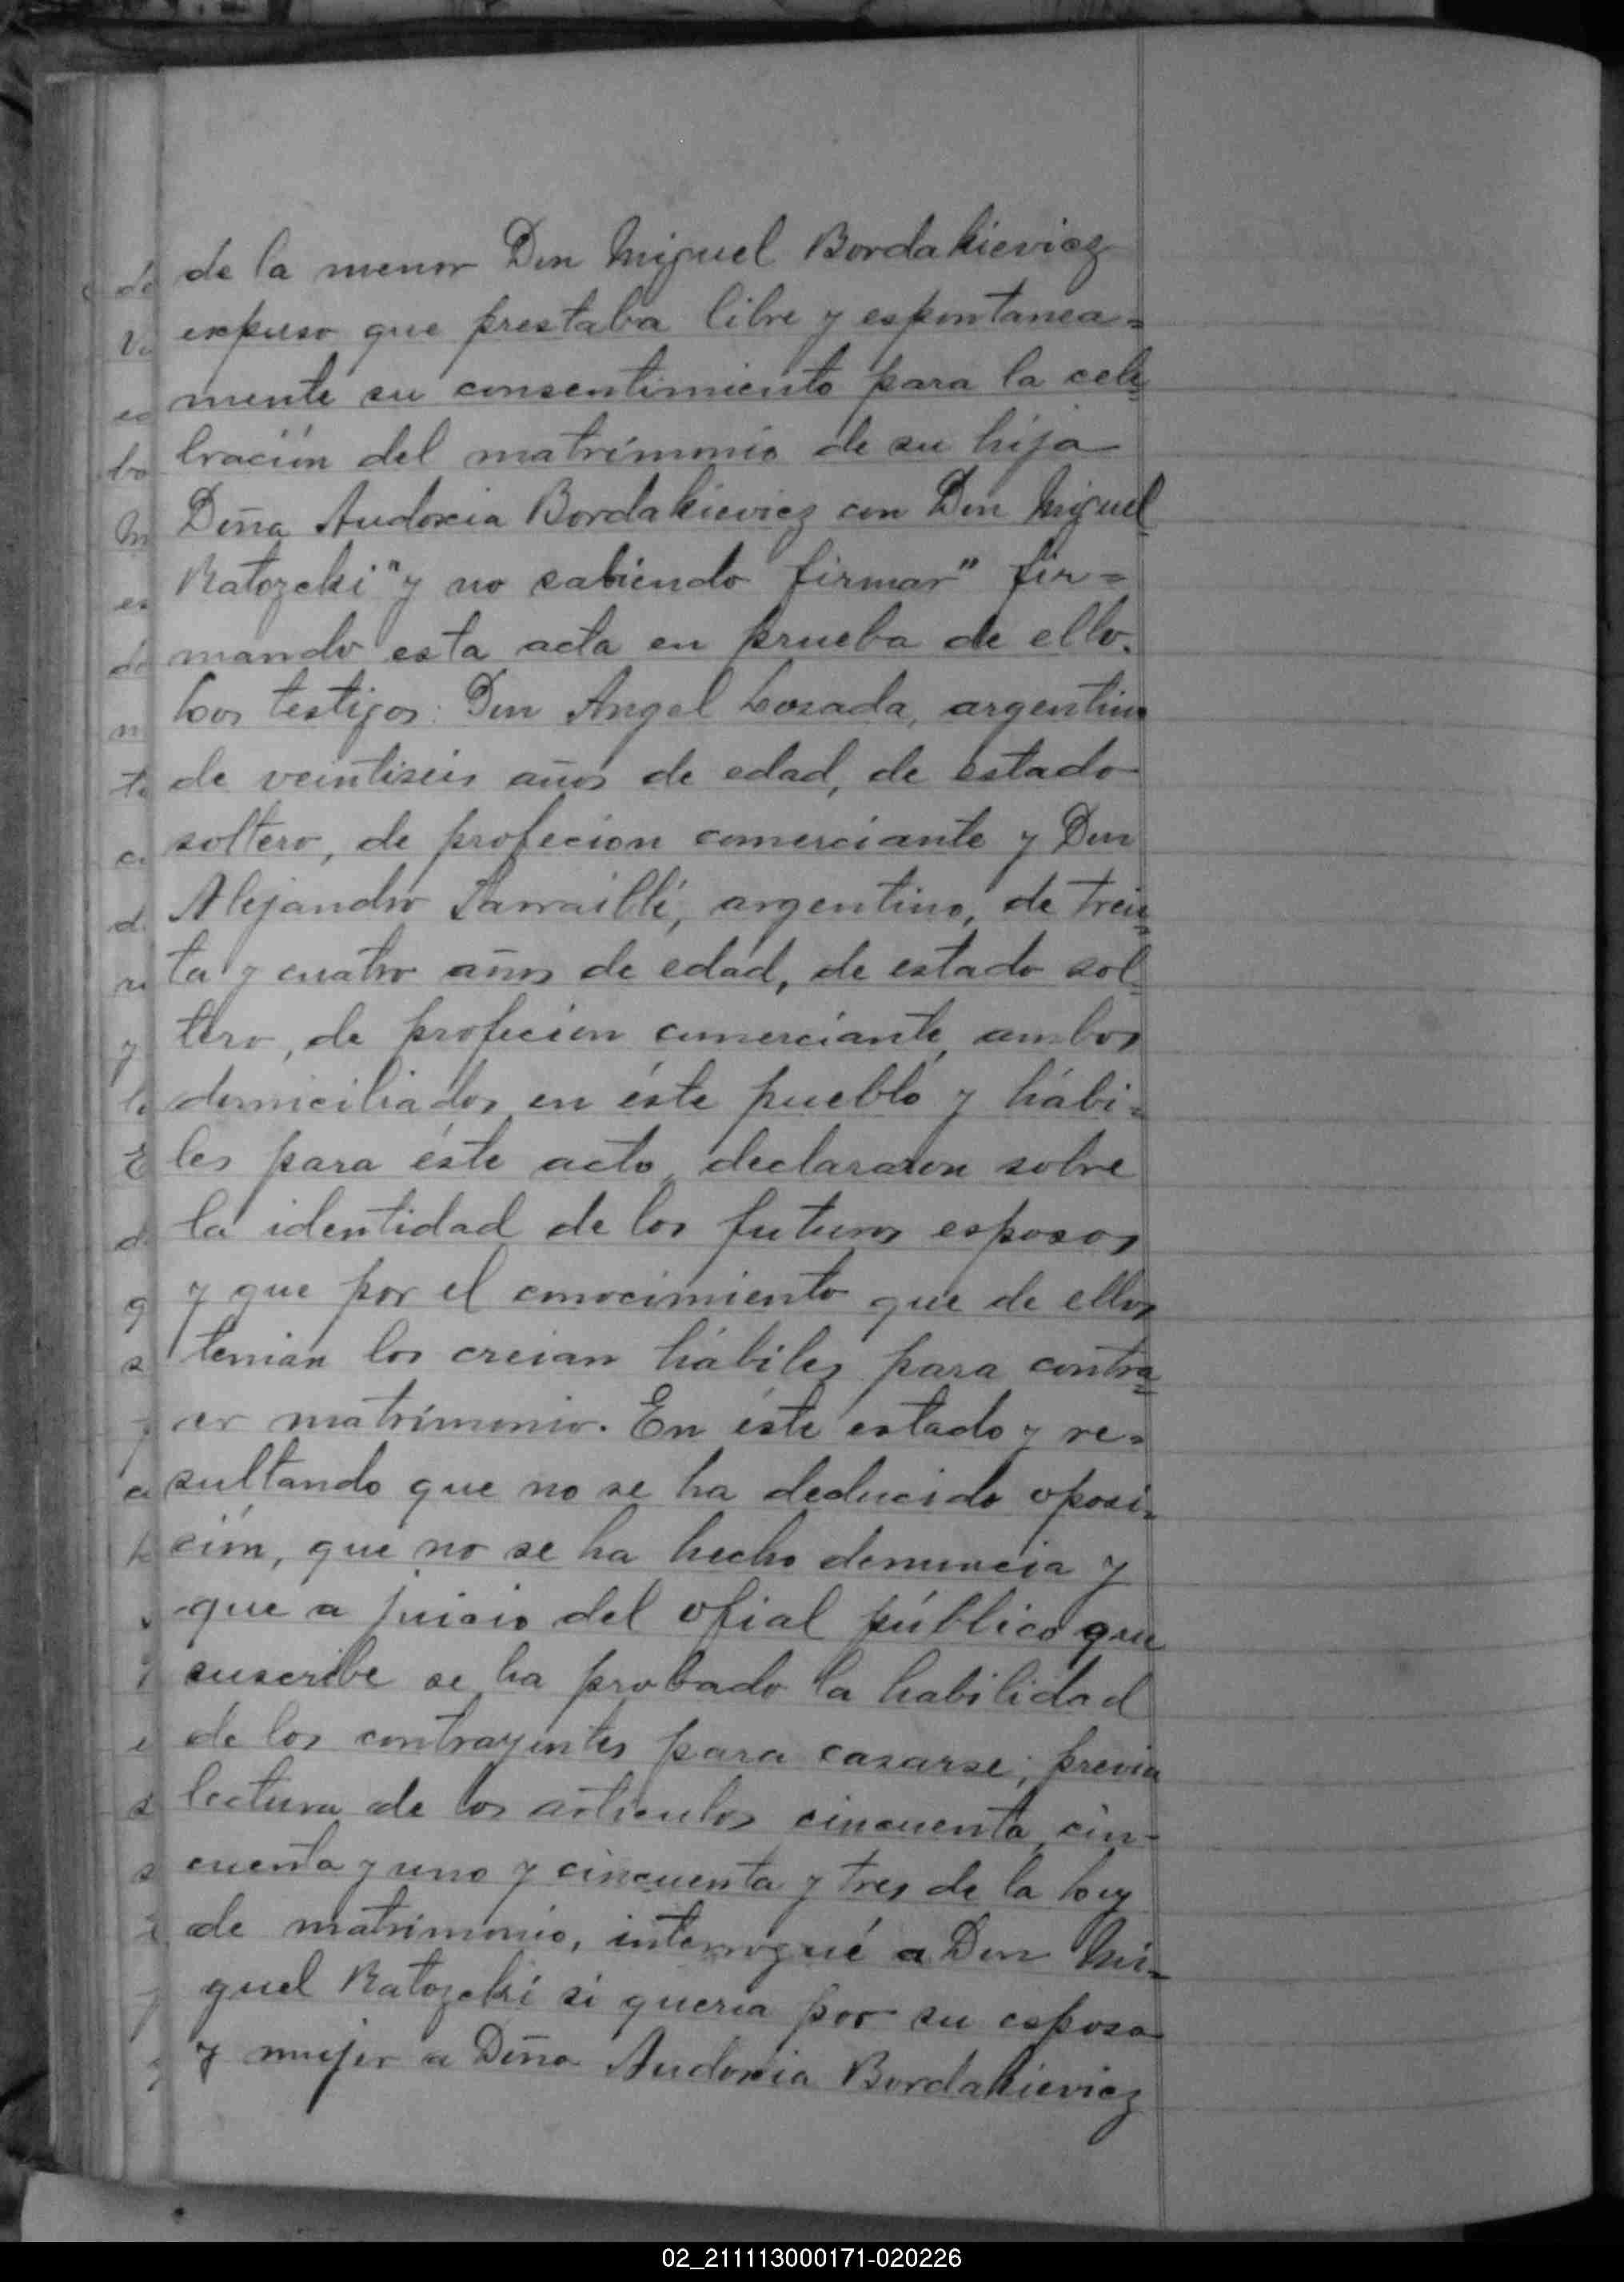 de la menor Don Miguel Bordakievicz
expuso que prestaba libre y espontanea=
mente su consentimiento para la cele=
bración del matrimonio de su hija
Doña Audoxia Bordakievicz con Don Miguel
Ratozcki "y no sabiendo firmar" fir=
mando esta acta en prueba de ello.
Los testigos: Don Angel Lozada, argentino
de veintiseis años de edad, de estado
soltero, de profecion comerciante y Don
Alejandro Sarraillé, argentino, de trein=
ta y cuatro años de edad, de estado sol=
tero, de profecion comerciante, ambos
domiciliados en éste pueblo y hábi=
les para éste acto, declararon sobre
la identidad de los futuros esposos
y que por el conocimiento que de ellos
tenian los creian hábiles para contra=
er matrimonio. En éste estado y re=
sultando que no se ha deducido oposi=
ción, que no se ha hecho denuncia y
que a juicio del ofial público que
suscribe se ha probado la habilidad
de los contrayentes para casarse; previa
lectura de los articulos cincuenta, cin-
cuenta y uno y cincuenta y tres de la Ley
de matrimonio, interrogué a Don Mi=
guel Ratozcki si queria por su esposa
y mujer a Doña Audoxia Bordakievicz
02_211113000171-020226